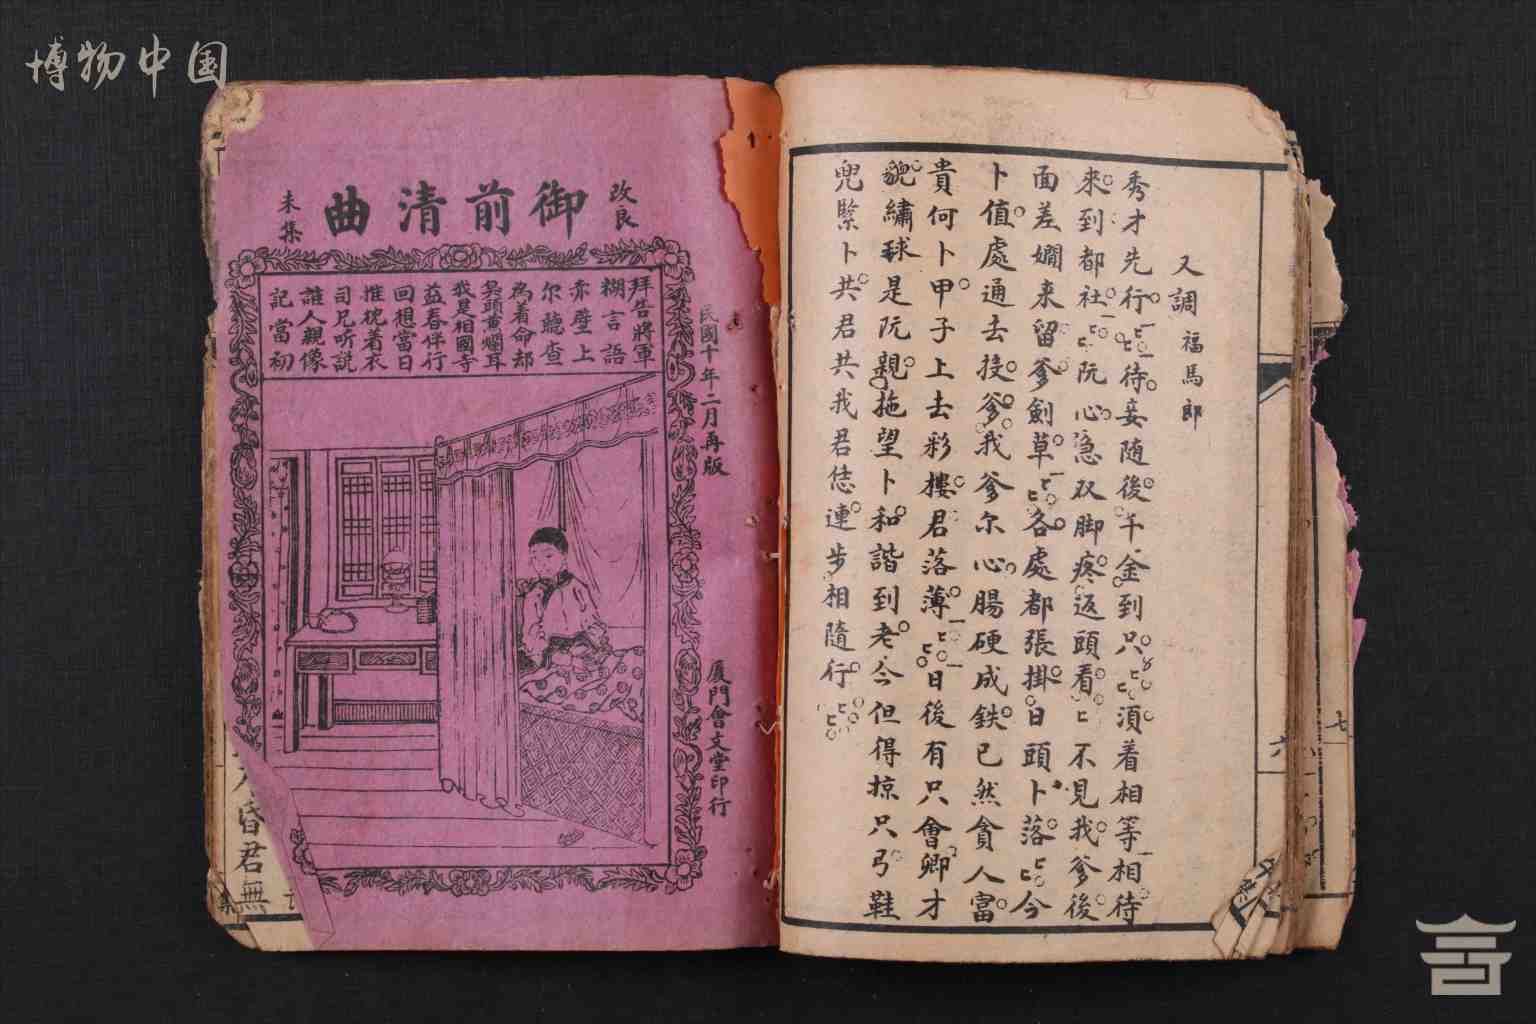 博物中国
改良
御前清曲
未集
拜告將軍
糊言語
赤壁上
尔聽查
為着命却
吳頭黄爛耳
我是相國寺
益春伴行
回想當日
推枕着衣
司兄听説
誰人親像
記當初
民國十年二月再版
厦門會文堂印行
昏君無
又調 福馬郎
秀才先行待妾随後千金到只湏着相等相待
來到都社阮心急双脚疼返頭看不見我爹後
面差嫺来留爹劍草各處都張掛日頭卜落今
卜值處通去投爹我爹尔心腸硬成鉄已然貪人富
貴何卜甲子上去彩樓君落薄日後有只會卿才
貌繡球是阮親拖望卜和諧到老今但得掠只弓鞋
兜緊卜共君共我君恁連步相隨行
六
七